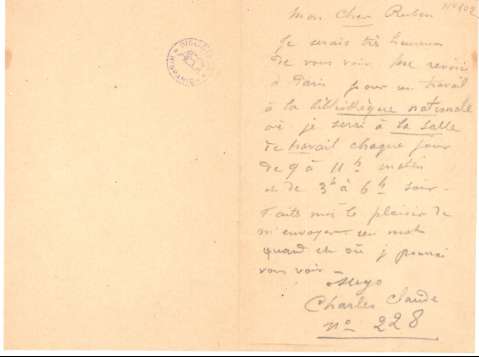 Nº 802
Mon Cher Ruben
Je serais très heureux
de vous voir
à Paris pour un travail
à la bibliothèque nationale
où je serai à la salle
de travail chaque jour
de 9 à 11 h matin
et de 3 h à 6 h soir.
Faites moi le plaisir de
m'envoyer un mot
quand et où je pourrai
vous voir
Charles Claude
Nº 228